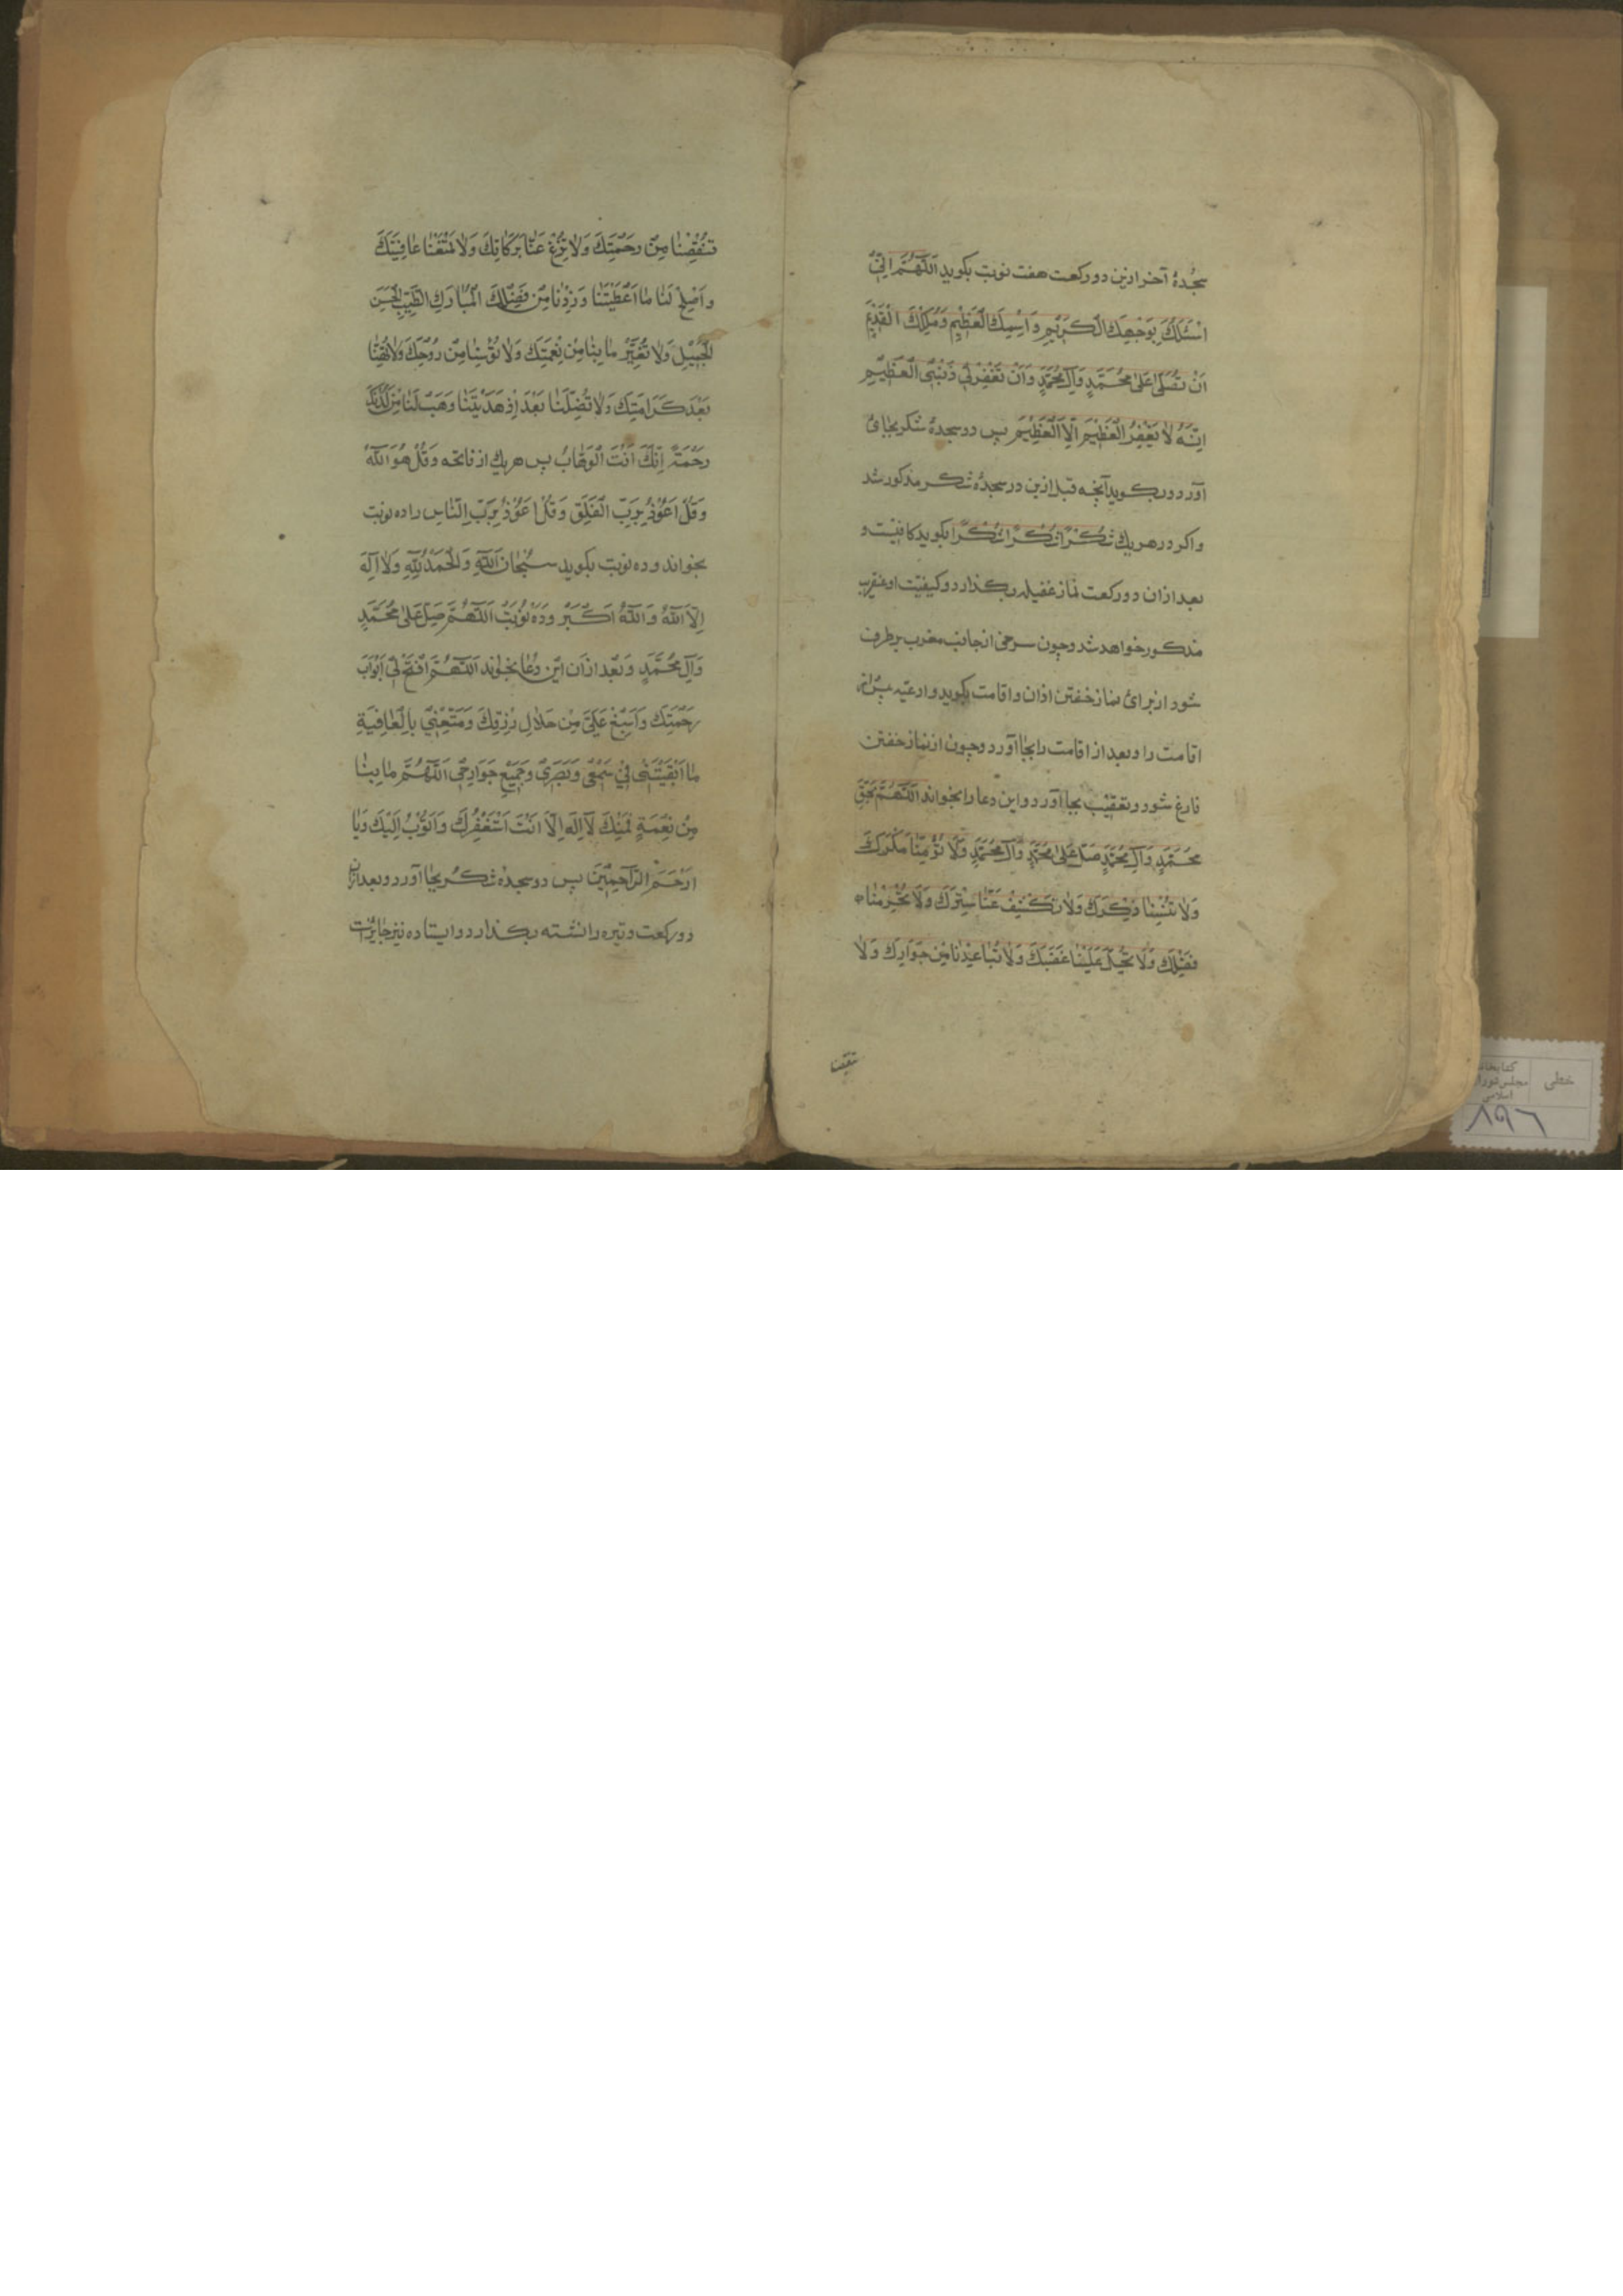 سجدهٔ آخر ازین دو رکعت هفت نوبت بکوید اَللّٰهُمَّ اِنّی
اَسْئَلُكَ بِوَجْهِكَ الْكَرِیْمِ وَاسْمِكَ الْعَظِیْمِ وَمُلْكِكَ الْقَدِیْمِ
اَنْ تُصَلِّیَ عَلٰی مُحَمَّدٍ وَآلِ مُحَمَّدٍ وَاَنْ تَغْفِرَ لِی ذَنْبِیَ الْعَظِیْمَ
اِنَّهُ لٰا یَغْفِرُ الْعَظِیْمَ اِلَّا الْعَظِیْمُ پس دو سجدهٔ شکر بجای
آورد و بکوید آنچه قبل ازین در سجدهٔ شکر مذکور شد
و اکر در هر یك شُكْرًا شُكْرًا شُكْرًا بکوید کافیست و
بعد ازان دو رکعت نماز غفیله بکذارد و کیفیت او عنقریب
مذکور خواهد شد و چون سرخی از جانب مغرب برطرف
شود از برای نماز خفتن اذان و اقامت بکوید و ادعیه
اقامت را و بعد از اقامت را بجا آورد و چون از نماز خفتن
فارغ شود و تعقیب بجا آورد و این دعا را بخواند اَللّٰهُمَّ بِحَقِّ
مُحَمَّدٍ وَآلِ مُحَمَّدٍ صَلِّ عَلٰی مُحَمَّدٍ وَآلِ مُحَمَّدٍ وَلٰا تُؤْمِنّٰا مَكْرَكَ
وَلٰا تُنْسِنٰا ذِكْرَكَ وَلٰا تَكْشِفْ عَنّٰا سِتْرَكَ وَلٰا تَحْرِمْنٰا
فَضْلَكَ وَلٰا تُحِلَّ عَلَیْنٰا غَضَبَكَ وَلٰا تُبٰاعِدْنٰا مِنْ جَوٰارِكَ وَلٰا
تنقصنا
تَنْقُصْنٰا مِنْ رَحْمَتِكَ وَلٰا تَنْزِعْ عَنّٰا بَرَكٰاتِكَ وَلٰا تَمْنَعْنٰا عٰافِیَتَكَ
وَاَصْلِحْ لَنٰا مٰا اَعْطَیْتَنٰا وَزِدْنٰا مِنْ فَضْلِكَ الْمُبٰارَكِ الطَّیِّبِ الْحَسَنِ
الْجَمِیْلِ وَلٰا تُغَیِّرْ مٰا بِنٰا مِنْ نِعْمَتِكَ وَلٰا تُؤْیِسْنٰا مِنْ رَوْحِكَ وَلٰا تُهِنّٰا
بَعْدَ كَرٰامَتِكَ وَلٰا تُضِلَّنٰا بَعْدَ اِذْ هَدَیْتَنٰا وَهَبْ لَنٰا مِنْ لَدُنْكَ
رَحْمَةً اِنَّكَ اَنْتَ الْوَهّٰابُ پس هر یك از فاتحه و قُلْ هُوَ اللّٰهُ
وَقُلْ اَعُوْذُ بِرَبِّ الْفَلَقِ وَقُلْ اَعُوْذُ بِرَبِّ النّٰاسِ را ده نوبت
بخواند و ده نوبت بکوید سُبْحٰانَ اللّٰهِ وَالْحَمْدُ لِلّٰهِ وَلٰا اِلٰهَ
اِلَّا اللّٰهُ وَاللّٰهُ اَكْبَرُ و ده نوبت اَللّٰهُمَّ صَلِّ عَلٰی مُحَمَّدٍ
وَآلِ مُحَمَّدٍ و بعد ازان این دعا بخواند اَللّٰهُمَّ افْتَحْ لِی اَبْوٰابَ
رَحْمَتِكَ وَاَسْبِغْ عَلَیَّ مِنْ حَلٰالِ رِزْقِكَ وَمَتِّعْنِی بِالْعٰافِیَةِ
مٰا اَبْقَیْتَنِی فِی سَمْعِی وَبَصَرِی وَجَمِیْعِ جَوٰارِحِی اَللّٰهُمَّ مٰا بِنٰا
مِنْ نِعْمَةٍ فَمِنْكَ لٰا اِلٰهَ اِلّٰا اَنْتَ اَسْتَغْفِرُكَ وَاَتُوْبُ اِلَیْكَ وَیٰا
اَرْحَمَ الرّٰاحِمِیْنَ پس دو سجدهٔ شکر بجا آورد و بعد ازان
دو رکعت وتیره را نشسته بکذارد و ایستاده نیز جایزاست
خطی
کتابخانه
مجلس شورای
اسلامی
۸۹۶